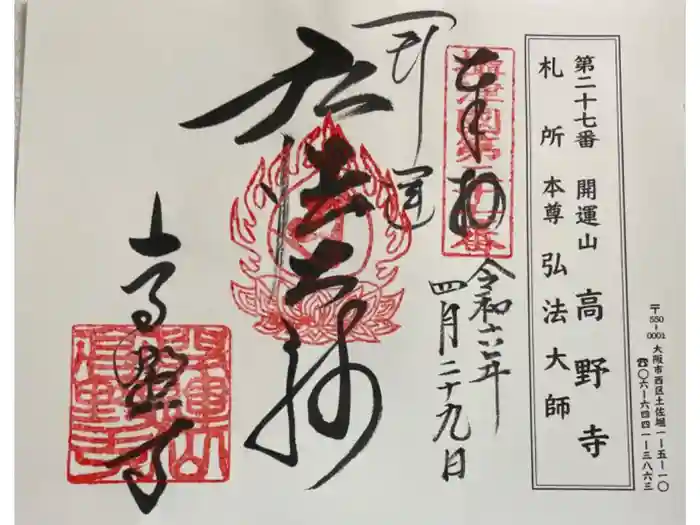 第二十七番 開運山 高野寺
札所 本尊 弘法大師
〒550-0001 大阪市西区土佐堀一-五-一〇
☎〇六-六四四一-三八六三
奉拝
令和六年
四月二十九日
開運
弘法大師
高野寺